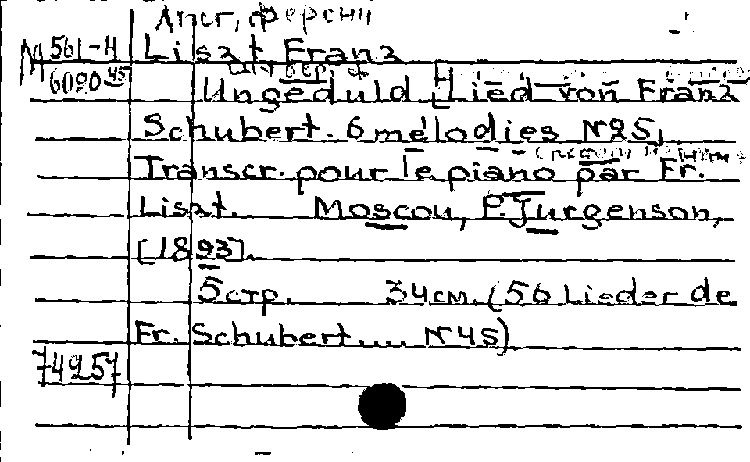 Лист, Ференц
М 561-4 Liszt Franz
6090 45
Ungeduld [Lied von Franz
Schubert. 6 mélodies №25,
Transcr. pour le piano par Fr.
Liszt. Moscou, P. Jurgenson,
[1893].
5 стр. 34 см. (56 Lieder de
Fr. Schubert.... №45)
74257